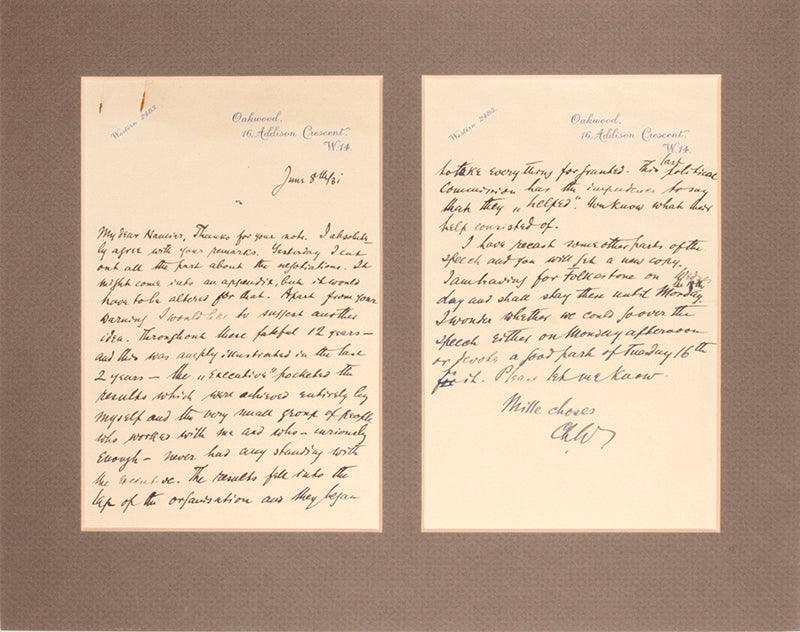 Western 2403.
Oakwood,
16, Addison Crescent,
W.14.
June 8th/31
My dear Namier, Thanks for your note. I absolute-
ly agree with your remarks. Yesterday I cut
out all the part about the negotiations. It
might come into an appendix, but it would
have to be altered for that. Apart from your
warning I would like to suggest another
idea. Throughout these fateful 12 years –
and this was amply illustrated in the last
2 years – the „Executive" pocketed the
results which were achieved entirely by
myself and the very small group of people
who worked with me and who – curiously
enough – never had any standing with
the Executive. The results fell into the
lap of the organisation and they began
Western 2403.
Oakwood,
16, Addison Crescent,
W.14.
to take everything for granted. This last political
Commission has the impudence to say
that they „helped". You know what their
help consisted of.
I have recast some other parts of the
speech and you will get a new copy.
I am leaving for Folkestone on Wednes-
day and shall stay there until Monday.
I wonder whether we could go over the
speech either on Monday afternoon
or devote a good part of Tuesday 16th
for it. Please let me know.
Mille choses
Ch.W.